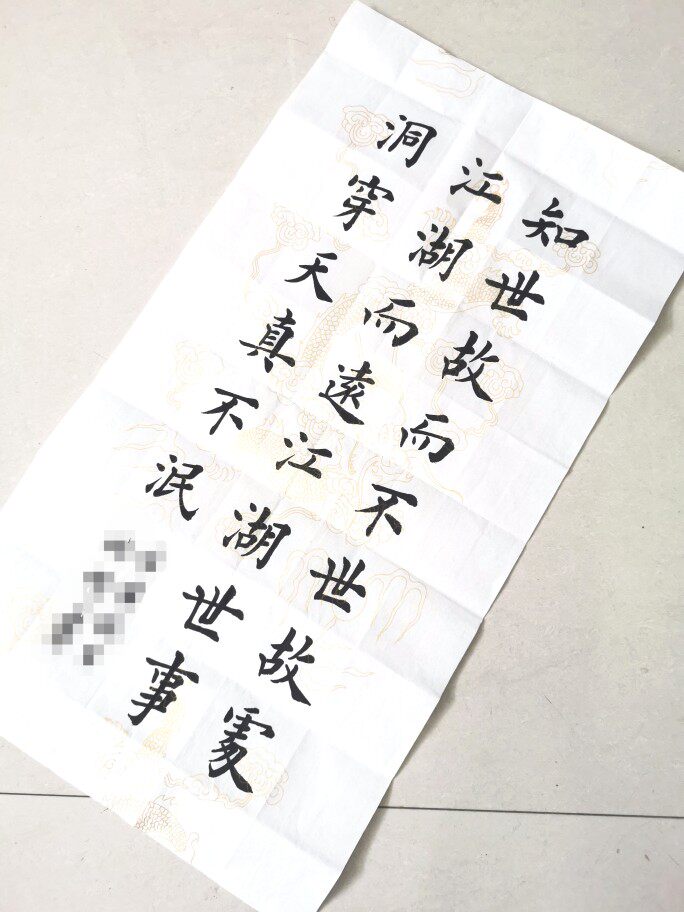 知世故而不世故處
江湖而遠江湖世事
洞穿天真不泯